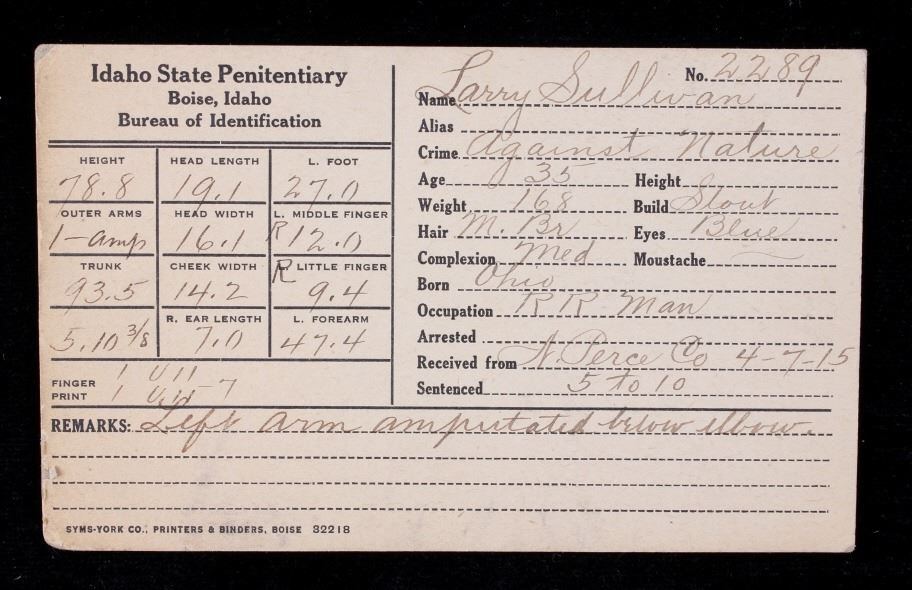 Idaho State Penitentiary
Boise, Idaho
Bureau of Identification
HEIGHT HEAD LENGTH L. FOOT
78.8 19.1 27.0
OUTER ARMS HEAD WIDTH L. MIDDLE FINGER
1-amp 16.1 R 12.0
TRUNK CHEEK WIDTH R LITTLE FINGER
93.5 14.2 9.4
R. EAR LENGTH L. FOREARM
5.10 3/8 7.0 47.4
FINGER PRINT
1 U 11
1 7
No. 2289
Name Larry Sullivan
Alias
Crime Against Nature
Age 35 Height
Weight 168 Build Stout
Hair M. Br Eyes Blue
Complexion Med Moustache
Born Ohio
Occupation R R Man
Arrested
Received from N. Perce Co 4-7-15
Sentenced 5 to 10
REMARKS: Left arm amputated below elbow.
SYMS-YORK CO., PRINTERS & BINDERS, BOISE 32218